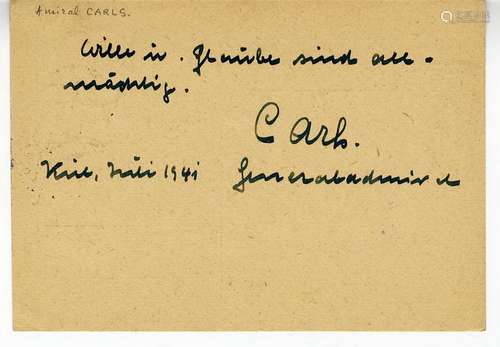 Amiral CARLS.
Wille u. Glaube sind all-
mächtig.
Carls.
Kiel, Juli 1941 Generaladmiral